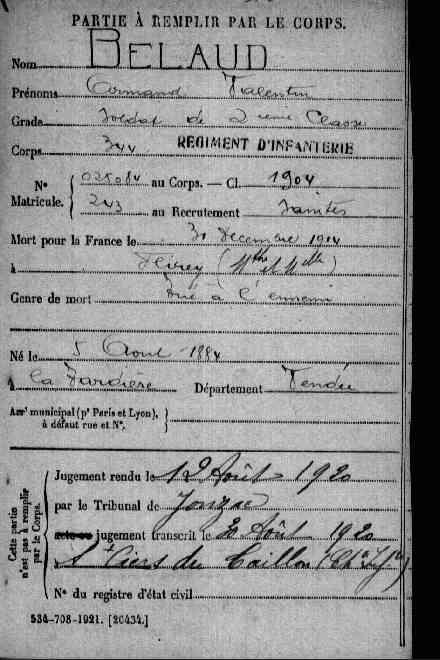 PARTIE À REMPLIR PAR LE CORPS.
Nom BELAUD
Prénoms Armand Valentin
Grade Soldat de 2ième Classe
Corps 344 REGIMENT D'INFANTERIE
N° 025084 au Corps. — Cl. 1904
Matricule. 243 au Recrutement Saintes
Mort pour la France le 31 Decembre 1914
à Flirey (Mthe et Mlle)
Genre de mort Tué à l'ennemi
Né le 5 Aout 1884
à la Tardière Département Vendée
Arrt municipal (pr Paris et Lyon),
à défaut rue et N°.
Cette partie
n'est pas à remplir
par le Corps.
Jugement rendu le 12 Août 1920
par le Tribunal de Jonzac
jugement transcrit le 20 Août 1920
St Ciers du Taillon (Chte Infre)
N° du registre d'état civil
534-708-1921. [26434.]